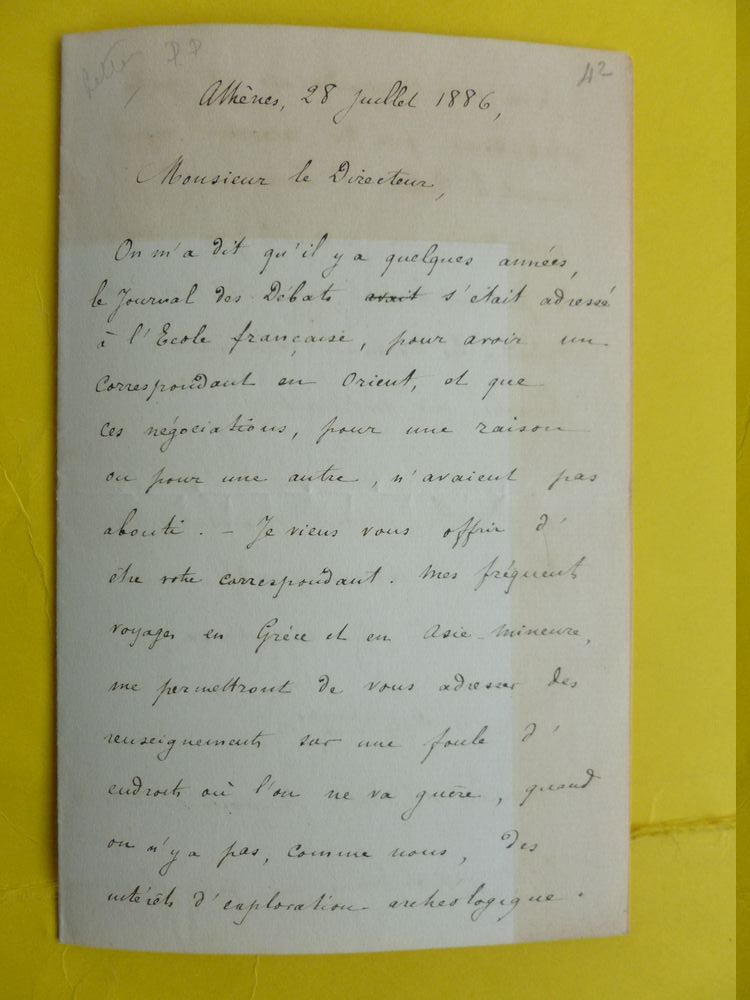 Lettre PP
42
Athènes, 28 Juillet 1886,
Monsieur le Directeur,
On m'a dit qu'il y a quelques années,
le Journal des Débats avait s'était adressé
à l'Ecole française, pour avoir un
correspondant en Orient, et que
ces négociations, pour une raison
ou pour une autre, n'avaient pas
abouti. – Je viens vous offrir d'
être votre correspondant. Mes fréquents
voyages en Grèce et en Asie-Mineure,
me permettront de vous adresser des
renseignements sur une foule d'
endroits où l'on ne va guère, quand
on n'y a pas, comme nous, des
intérêts d'exploration archéologique.